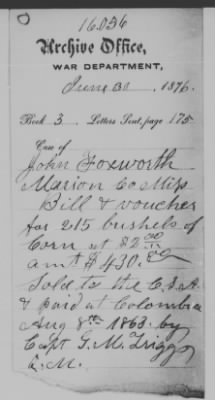 16.036
Archive Office,
WAR DEPARTMENT,
June 30 1876.
Book 3 Letters Sent, page 175
Case of
John Foxworth
Marion Co Miss
Bill & voucher
for 215 bushels of
Corn at $2.00
amt $430.00
Sold to the C.S.A.
& paid at Columbia
Aug 8th 1863 by
Capt G. M. Trigg
Q.M.